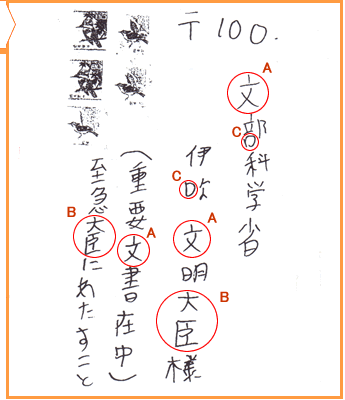 〒100.
A
文部科学省
C
伊吹文明大臣様
C
A
B
(重要文書在中)
A
至急大臣にわたすこと
B